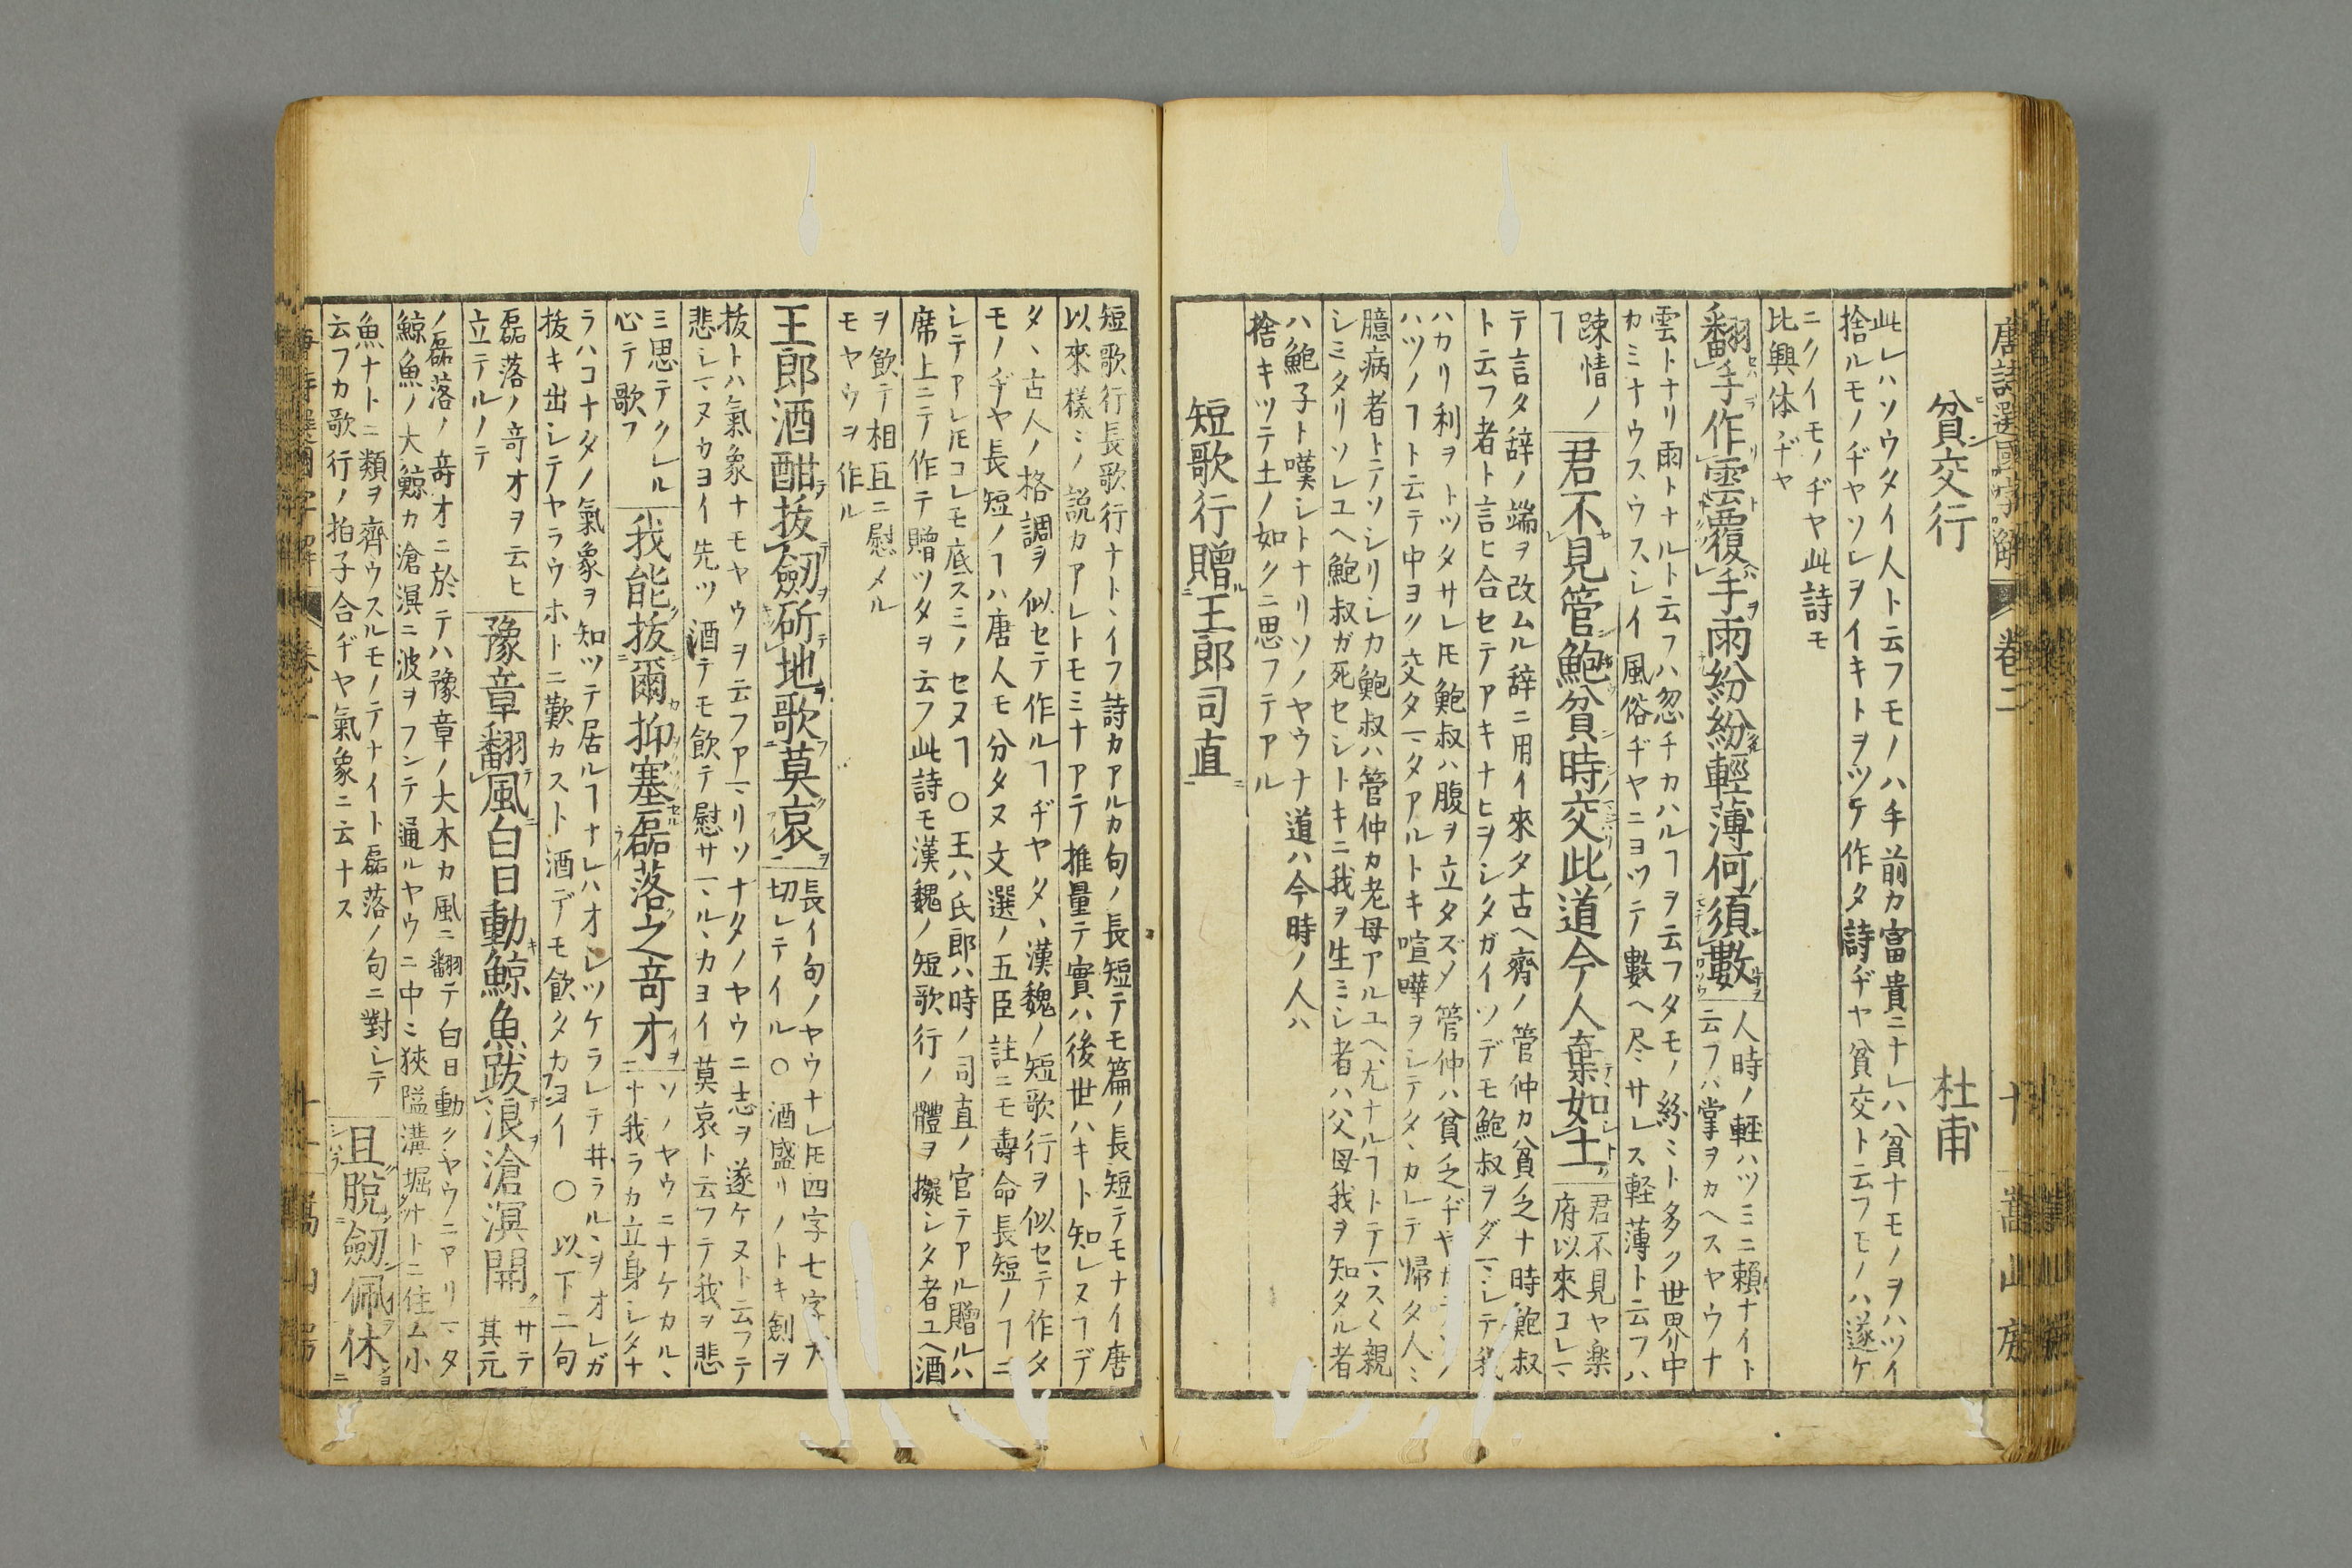 唐詩選國字解 卷二 十 嵩山房
貧交行 杜甫
此レハソウタイ人ト云フモノハ手前カ富貴ニナレハ貧ナモノヲハツイ
捨ルモノヂヤソレヲイキトヲツテ作タ詩ヂヤ貧交ト云フモノハ遂ケ
ニクイモノヂヤ此詩モ
比興体ヂヤ
翻手作雲覆手雨紛紛輕薄何須數
人時ノ軽ハツミニ頼ナイト
云フハ掌ヲカヘスヤウナ
雲トナリ雨トナルト云フハ忽チカハルヿヲ云フタモノ紛ミト多ク世界中
カミナウスウスシイ風俗ヂヤニヨツテ數ヘ尽サレス軽薄ト云フハ
踈情ノ
ヿ
君不見管鮑貧時交此道今人棄如土
君不見ヤ楽
府以來コレ
テ言タ辞ノ端ヲ改ムル辞ニ用イ來タ古ヘ齊ノ管仲カ貧ノ之ナ時鮑叔
ト云フ者ト言ヒ合セテアキナヒヲシタガイツデモ鮑叔ヲダマシテ我
ハカリ利ヲトツタサレ𪜈鮑叔ハ腹ヲ立タズメ管仲ハ貧乏ヂヤ
ハツノヿト云テ中ヨク交タマタアルトキ喧嘩ヲシテタヽカレテ帰タ人ミ
臆病者トテソシリシカ鮑叔ハ管仲カ老母アルユヘ尤ナルヿトテマスく親
シミタリソレユヘ鮑叔ガ死セシトキニ我ヲ生ミシ者ハ父母我ヲ知タル者
ハ鮑子ト嘆シトナリソノヤウナ道ハ今時ノ人ハ
捨キツテ土ノ如クニ思フテアル
短歌行贈王郎司直
短歌行長歌行ナトヽイフ詩カアルカ句ノ長短テモ篇ノ長短テモナイ唐
以來樣ミノ説カアレトモミナアテ推量テ實ハ後世ハキト知レヌヿデ
タヽ古人ノ格調ヲ似セテ作ルヿヂヤタヽ漢魏ノ短歌行ヲ似セテ作タ
モノヂヤ長短ノヿハ唐人モ分タヌ文選ノ五臣註ニモ壽命長短ノヿニ
シテアレ𪜈コレモ底スミノセヌヿ〇王ハ氏郎ハ時ノ司直ノ官テアル贈ルハ
席上ニテ作テ贈ツタヲ云フ此詩モ漢魏ノ短歌行ノ體ヲ擬シタ者ユヘ酒
ヲ飲テ相互ニ慰メル
モヤウヲ作ル
王郎酒酣抜劒斫地歌莫哀
長イ句ノヤウナレ𪜈四字七字
切レテイル〇酒盛リノトキ劍ヲ
抜トハ氣象ナモヤウヲ云フアマリソナタノヤウニ志ヲ遂ケヌト云フテ
悲シマヌカヨイ先ツ酒テモ飲テ慰サマルヽカヨイ莫哀ト云フテ我ヲ悲
ミ思テクレル
心テ歌フ
我能抜爾抑塞磊落之竒才
ソノヤウニナケカルヽ
ナ我ラカ立身シタナ
ラハコナタノ氣象ヲ知ツテ居ルヿナレハオレツケラレテ井ラルヽヲオレガ
抜キ出シテヤラウホトニ歎カスト酒デモ飲タカヨイ〇以下二句
磊落ノ竒オヲ云ヒ
立テルノテ
豫章翻風白日動鯨魚跋浪滄溟開
サテ
其元
ノ磊落ノ竒オニ於テハ豫章ノ大木カ風ニ翻テ白日動クヤウニアリマタ
鯨魚ノ大鯨カ滄溟ニ波ヲフンテ通ルヤウニ中ニ狹隘溝堀ナトニ住ム小
魚ナトニ類ヲ齊ウスルモノテナイト磊落ノ句ニ對シテ
云フカ歌行ノ拍子合ヂヤ氣象ニ云ナス
且脱劒佩休